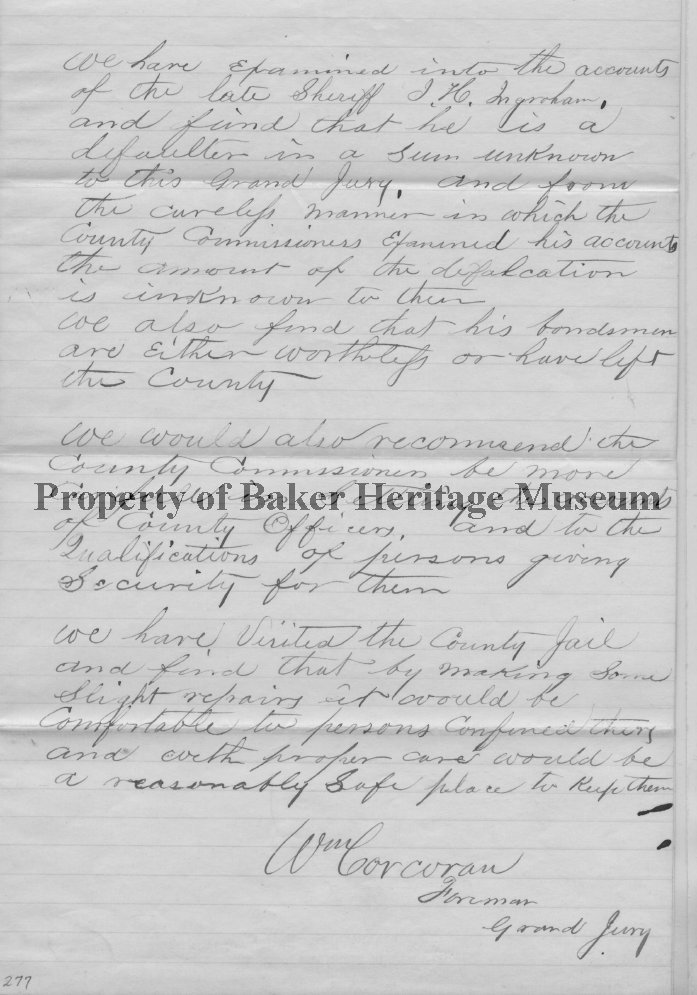 We have Examined into the accounts
of the late Sheriff J. H. Ingraham,
and find that he is a
defaulter in a Sum unknown
to this Grand Jury, and from
the careless manner in which the
County Commissioners Examined his accounts
the amount of the defalcation
is unknown to them
We also find that his bondsmen
are Either worthless or have left
the County
We would also recommend the
County Commissioners be more
Property of Baker Heritage Museum
of County Officers, and to the
Qualifications of persons giving
Security for them
We have Visited the County Jail
and find that by making Some
Slight repairs it would be
Comfortable to persons Confined there
and with proper care would be
a reasonably Safe place to Keep them
Wm Corcoran
Foreman
Grand Jury
277